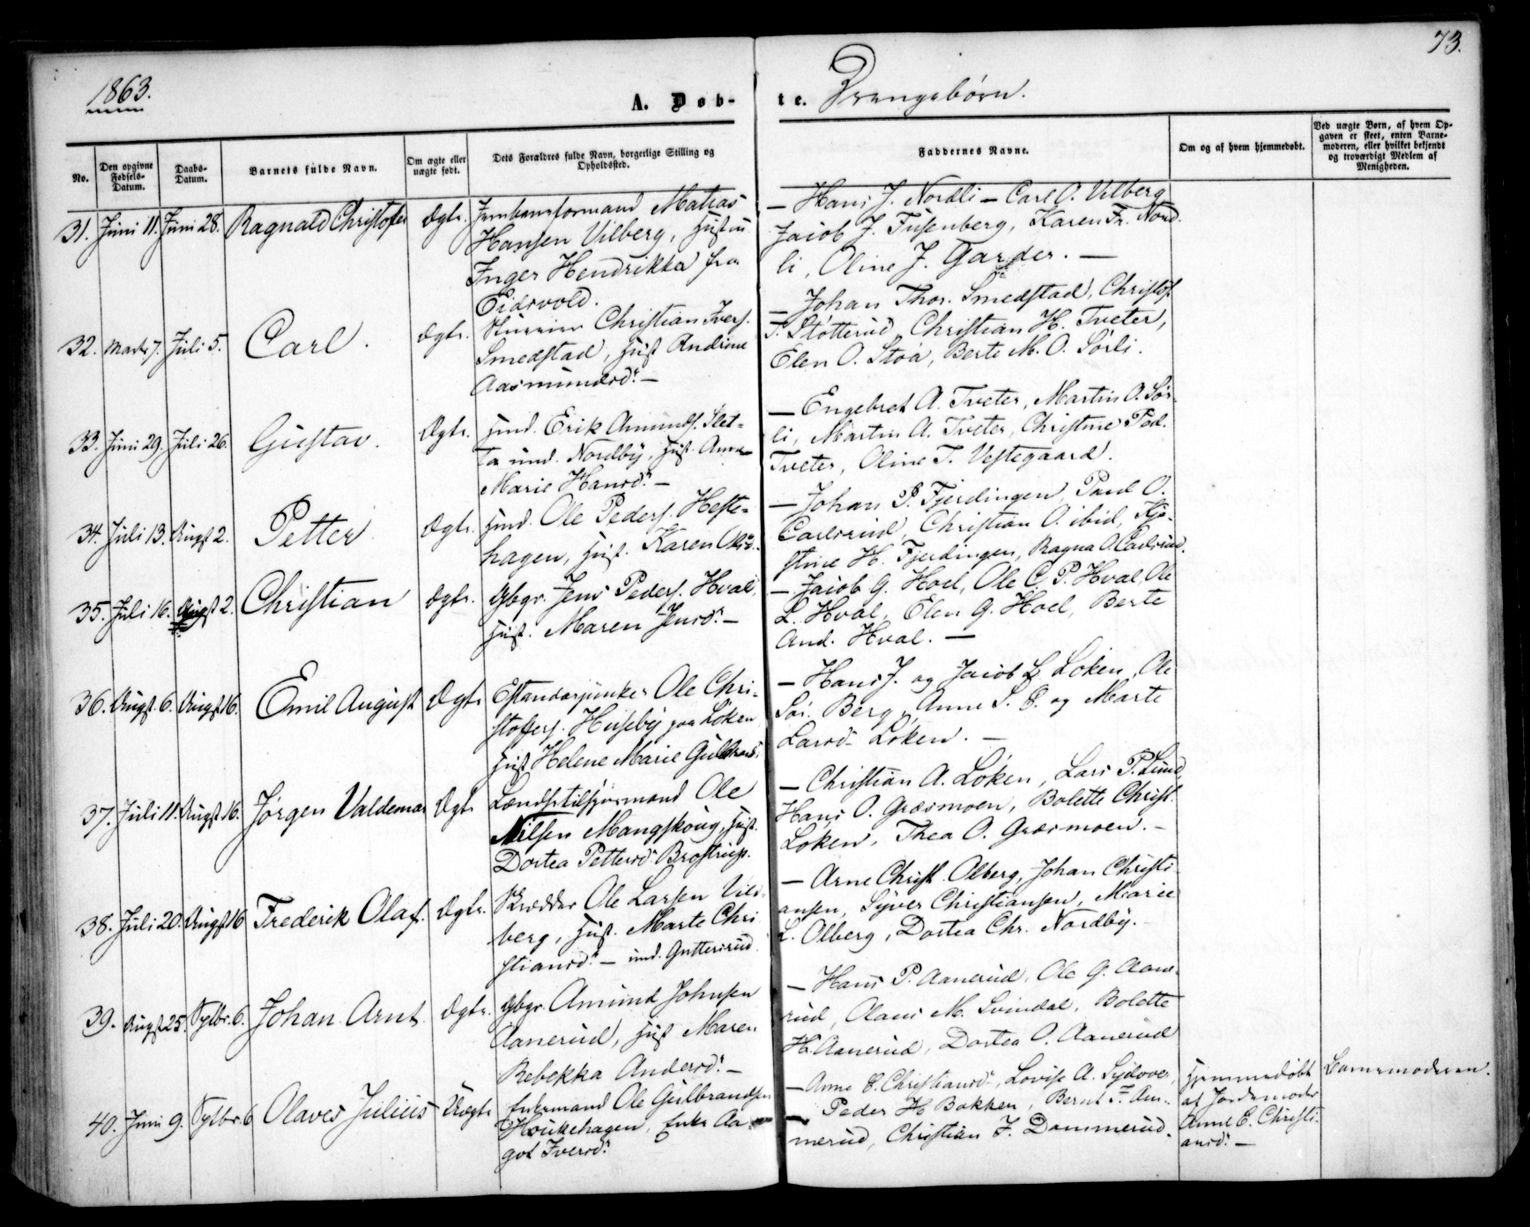 1863.
73.
A. Døb-
te. Drengebørn.
No.
Den opgivne Fødsels-Datum.
Daabs-Datum.
Barnets fulde Navn.
Om ægte eller uægte født.
Dets Forældres fulde Navn, borgerlige Stilling og Opholdssted.
Faddernes Navne.
Om og af hvem hjemmedøbt.
Ved uægte Børn, af hvem Opgaven er skeet, enten Barnemoderen, eller hvilket bekjendt og troværdigt Medlem af Menigheden.
31. Juni 11. Juni 28. Ragnald Christofer Ægte. Jernbaneformand Matias
Hansen Vilberg, Hustru
Inger Hendrikka fra
Eidsvold.
— Hans J. Nordli — Carl O. Vilberg
Jacob J. Tusenberg, Karen Fr. Nord-
li, Oline J. Garder. —
32. Marts 7. Juli 5. Carl. Ægte. Huseier Christian Ivers.
Smedstad, Hust Andrine
Aasmundsd. —
— Johan Thor. Smedstad, Christof.
T. Støtterud, Christian H. Tveter,
Elen O. Stoa, Berte M. O. Sørli.
33. Juni 29. Juli 26. Gustav. Ægte. Hmd. Erik Amunds. Slet-
ta und. Nordby, Hust. Anne
Marie Hansd. —
— Engebret A. Tveter, Martin O. Sør-
li, Martin A. Tveter, Christine Ped.
Tveter, Oline T. Vestegaard.
34. Juli 13. Augst 2. Petter Ægte. Hmd. Ole Peders. Heste-
hagen, Hust. Karen Olsd.
— Johan P. Fjerdingen, Paul O.
Carlsrud, Christian O. ibid, Kji-
stine H. Fjerdingen, Ragna O. Carlsrud.
35. Juli 16. Augst 2. Christian Ægte. Gbgr. Jens Peders. Hval,
Hust. Maren Jensd. —
— Jacob G. Hoel, Ole C. P. Hval, Ole
L. Hval, Elen G. Hoel, Berte
And. Hval. —
36. Augst. 6. Augst 16. Emil August Ægte Estandarjunker Ole Chri-
stoffers. Huseby paa Løken
Hust Helene Marie Gulbransd.
— Hans J. og Jacob J. Løken, Ole
Sør. Berg, Anne S. E. og Marte
Larsd. Løken. —
37. Juli 11. Augst 16. Jørgen Valdemar Ægte Lændstilsynsmand Ole
Nilsen Mangskoug, Hust.
Dortea Pettersd. Brostrup.
— Christian A. Løken, Lars P. Lund,
Hans O. Græsmoen, Bolette Christ.
Løken, Thea O. Græsmoen. —
38. Juli 20. Augst 16 Frederik Olaf. Ægte. Skrædder Ole Larsen Vil-
berg, Hust. Marte Chri
stiansd. — und. Guttersrud
— Arne Christ. Olberg, Johan Christi-
ansen, Syver Christiansen, Marie
L. Olberg, Dortea Chr. Nordby.
39. Augst 25. Septbr. 6. Johan Arnt. Ægte. Gbgr. Amund Johnsen
Aanerud, Hust Maren
Rebekka Andersd. —
— Hans P. Aanerud, Ole G. Aane-
rud, Olaus M. Svindal, Bolette
H. Aanerud, Dortea O. Aanerud
40. Juni 9. Septbr. 6 Olaves Julius Uægte Enkemand Ole Gulbrandsen
Houkehagen, Enke Aa-
got Iversd.
— Anne E. Christiansd., Lovise A. Sydover,
Peder H. Bakken, Bernt F. Am-
merud, Christian J. Dammerud.
Hjemmedøbt
af Jordemoder
Anne E. Christi-
ansd. —
Barnemoderen.